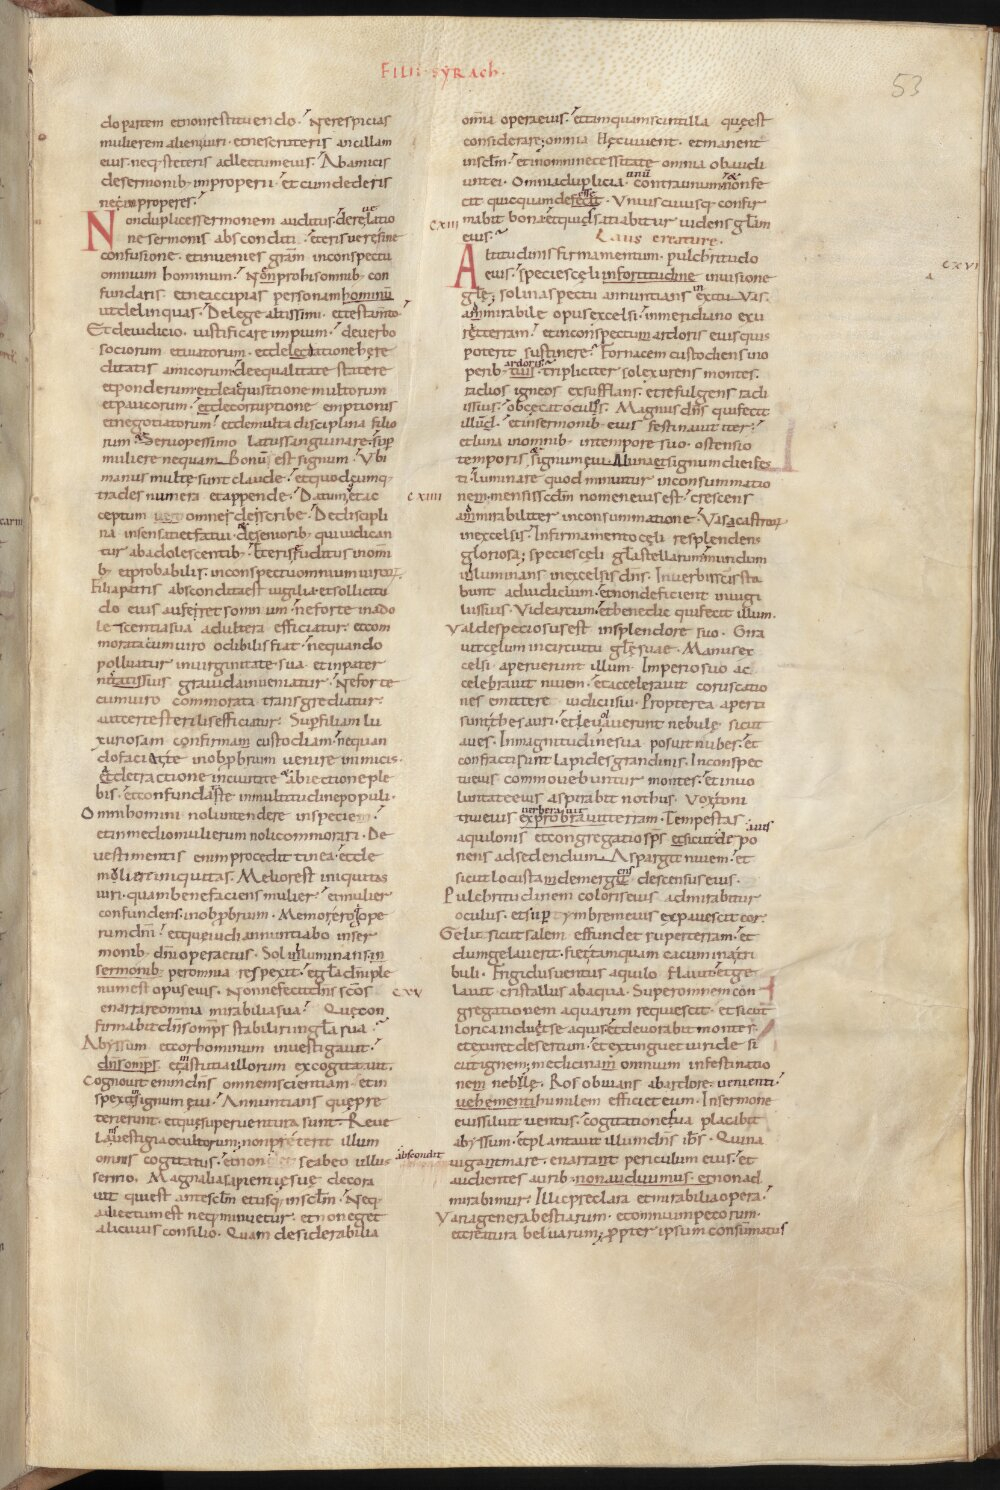 Filii · syrach ·
53
do partem et non restituendo · Ne respicias
mulierem alieni uiri · et ne scruteris ancillam
eius · neq· steteris ad lectum eius · Ab amicis
de sermonib· improperii · et cum dederis
ne improperes ·
Non duplices sermonem auditus · de reuelatio
ne sermonis absconditi · et eris uere sine
confusione · et inuenies gratiam in conspectu
omnium hominum · Non pro his omnib· con
fundaris · et ne accipias personam hominū
ut delinquas · De lege altissimi · et testamto
Et de iudicio · iustificare impium · de uerbo
sociorum et uiatorum · et de lectatione here
ditatis amicorum de equalitate statere
et ponderum et de aquisitione multorum
et paucorum · et de corruptione emptionis
et negotiatorum · et de multa disciplina filio
rum · Seruo pessimo latus sanguinare · sup
muliere nequam · Bonū est signum · Vbi
manus multe sunt claude · et quodcumq·
trades numera et appende · Datum et ac
cxiiii
ceptum omne describe · De discipli
na insensati et fatui · de seniorib· qui iudican
tur ab adolescentib· Et eris eruditus in omni
b· et probabilis · in conspectu omnium uirorum
Filia patris abscondita est uigilia · et sollicitu
do eius auferet somnum · ne forte in ado
lescentia sua adultera efficiatur · et com
morata cum uiro odibilis fiat · nequando
polluatur in uirginitate sua · et in pater
nitatis suis grauida inueniatur · Ne forte
cum uiro commorata transgrediatur ·
aut certe sterilis efficiatur · Sup filiam lu
xuriosam confirmam custodiam · nequan
do faciat te in obprobrium uenire inimicis ·
et detractione in ciuitate abiectione ple
bis · et confundat te in multitudine populi ·
Omni homini noli intendere in speciem ·
et in medio mulierum noli commorari · De
uestimentis enim procedit tinea · et de
muliere iniquitas · Melior est iniquitas
uiri · quam benefaciens mulier · et mulier
confundens · in obprobrium · Memor ero ope
rum dn̄i · et que uidi annuntiabo in ser
monib· dn̄i opera eius · Sol illuminans in
sermonib· per omnia respexit · et gla dn̄i ple
num est opus eius · Nonne fecit dn̄s scōs
cxv
enarrare omnia mirabilia sua · Que con
firmabit dn̄s omps stabiliri in gla sua ·
Abyssum et cor hominum inuestigauit ·
dn̄s omps et in astutia illorum excogitauit ·
Cognouit enim dn̄s omnem scientiam · et in
spexit in signum eui · Annuntians que pre
terierunt · et que superuentura sunt · Reue
lans uestigia occultorum; non preterit illum
omnis cogitatus · et non se ab eo ullus
abscondit
sermo · Magnalia sapientie sue decora
uit qui est ante sclm et usq· in sclm · Neq·
adiectum est neq· minuetur · et non eget
alicuius consilio · Quam desiderabilia
omnia opera eius · et tamquam scintilla que est
considerare; omnia Hec uiuunt · et manent
in sclm · et in omni necessitate omnia obaudi
unt ei · Omnia duplicia · unū contra unum · et non fe
cit quicquam deesse · Vniuscuiusq· confir
cxiii
mabit bona et quis satiabitur uidens glam
eius ·
Laus creature ·
Altitudinis firmamentum · pulchritudo
cxvi
eius · species celi in fortitudine in uisione
gle; sol in aspectu annuntians in exitu · Vas
ammirabile opus excelsi · in meridiano exu
ret terram · et in conspectum ardoris eius quis
poterit sustinere · Fornacem custodiens in o
perib· ardoris · tripliciter sol exurens montes ·
radios igneos exsufflans · et refulgens radi
is suis · obcecat oculos · Magnus dn̄s qui fecit
illū · et in sermonib· eius festinauit iter ·
et luna in omnib· in tempore suo · ostensio
temporis signum eui · A luna et signum diei fes
ti · luminare quod minuitur in consummatio
nem · mensis scdm nomen eius est · crescens
ammirabiliter in consummatione · Vas castrorum
in excelsis · In firmamento celi resplendens
gloriosa; species celi gla stellarum mundum
illuminans in excelsis dn̄s · In uerbis scis sta
bunt ad iudicium · et non deficient in uigi
liis suis · Vide arcum et benedic qui fecit illum ·
Valde speciosus est in splendore suo · Gira
uit celum in circuitu gle suae · Manus ex
celsi aperuerunt illum · Imperio suo ac
celebrauit niuem · et accelerauit coruscatio
nes emittere iudicii sui · Propterea aperti
sunt thesauri · et euolauerunt nebule sicut
aues · In magnitudine sua posuit nubes · et
confracti sunt lapides grandinis · In conspec
tu eius commouebuntur montes · et in uo
luntate eius aspirabit nothus · Vox toni
trui eius uerberauit exprobrauit terram · Tempestas
aquilonis et congregatio sps et sicut auis de po
nens ad sedendum · Aspargit niuem · et
sicut locusta demergens descensus eius ·
Pulchritudinem coloris eius admirabitur
oculus · et sup ymbrem eius expauescit cor ·
Gelu sicut salem effundet super terram · et
dum gelauerit · fiet tamquam cacumina tri
buli · Frigidus uentus aquilo flauit et ge
lauit cristallus ab aqua · Super omnem con
gregationem aquarum requiescit · et sicut
lorica induet se aquis et deuorabit montes ·
et exuret desertum · et extinguet uiride si
cut ignem; medicina omnium in festinatio
nem nebule · Ros obuians ab ardore · uenienti ·
uehementi humilem efficiet eum · In sermone
eius siluit uentus · cogitatione sua placabit
abyssum · et plantauit illum dn̄s ihs · Qui na
uigant mare · enarrant periculum eius · et
audientes aurib· non audiuimus · et non ad
mirabimur · Illic preclara et mirabilia opera ·
Varia genera bestiarum · et omnium pecorum ·
et creatura beluarum; ppter ipsum consūmatus